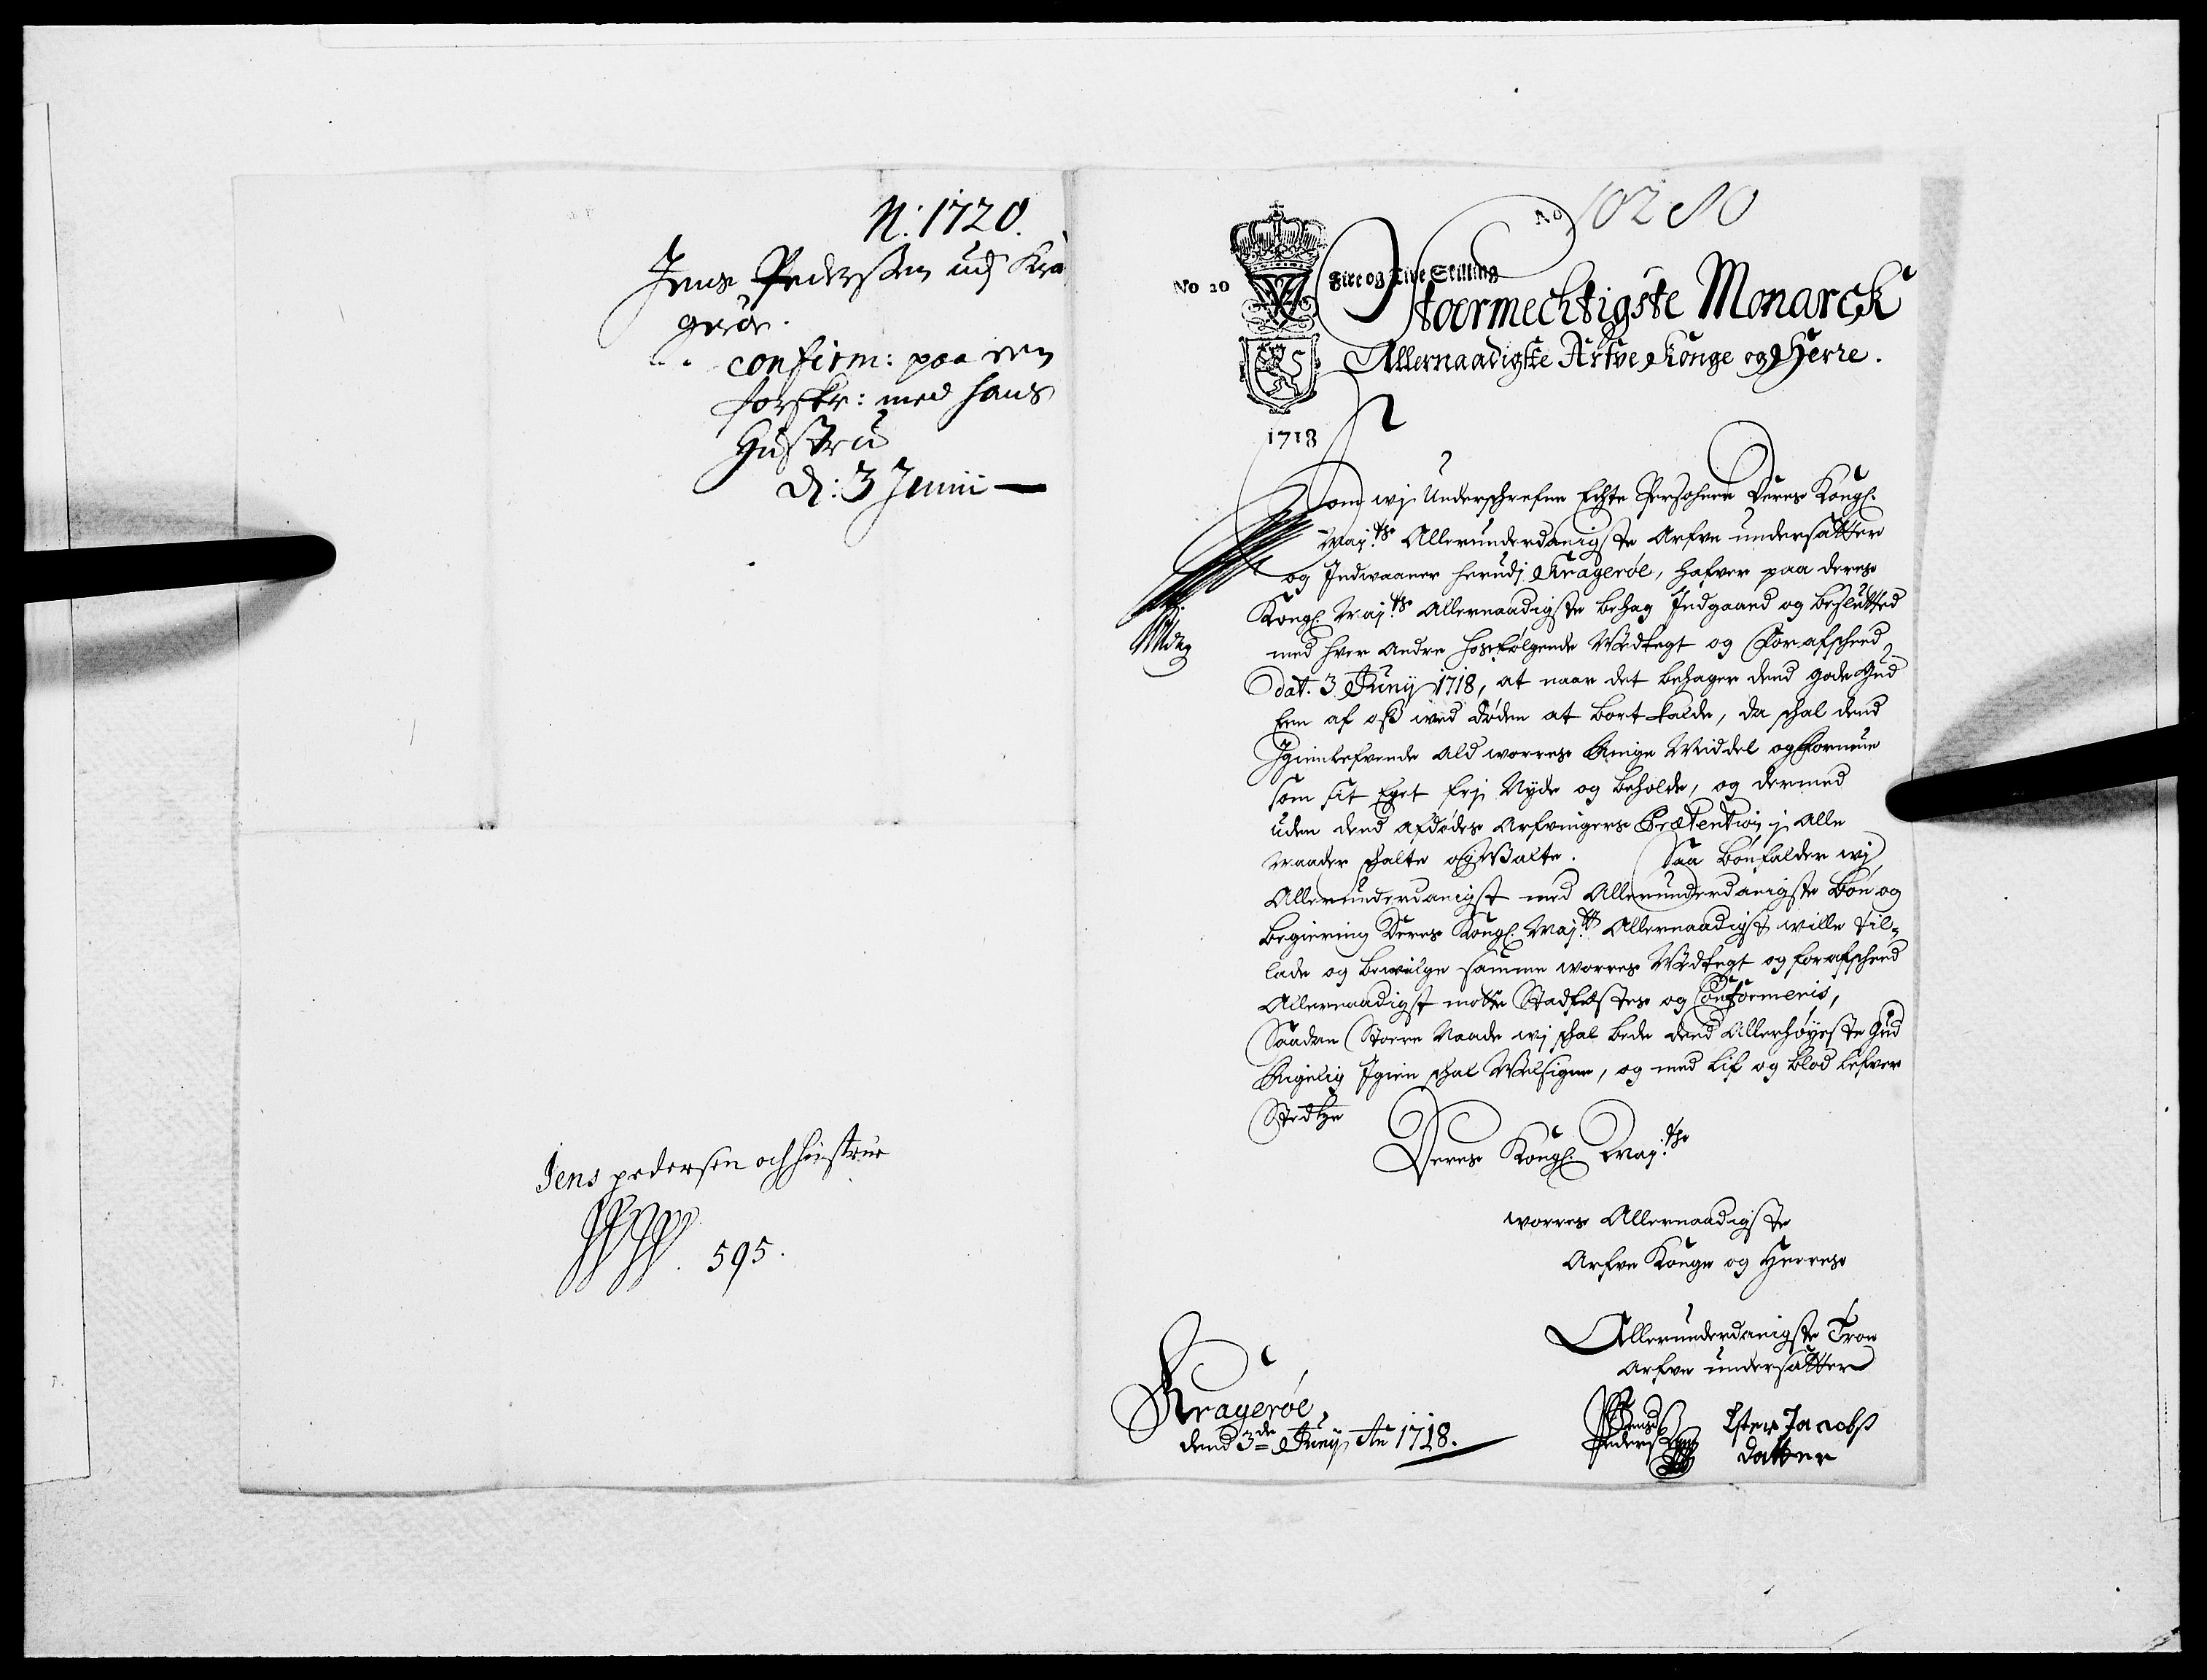 N: 1720.
Jens Pedersen udj Kra
gerøe.
confirm: paa een
forskr: med hans
Hustru
d: 3 Junii
Jens pedersen och hustrue
595.
No
No 20
Fire og Tive Skilling
Stoermechtigste Monarck
Allernaadigste Arfve Konge og Herre.
1718
Som wj Underschrefne Echte Persohner Deres Kongl.
May.ts Allerunderdanigste Arfve undersatter
og Indvaaner herudj Kragerøe, hafver paa deres
Kongl. May.ts Allernaadigste behag Indgaaed og beslutted
med hver andre hosfølgende Wedtegt og Forafscheed,
dat. 3 Junÿ 1718, at naar det behager dend gode Gud
Een af oss wed døden at bort kalde, da schal dend
Igienlefvende ald worres Ringe Middel og Formue
som sit Eget frj Nyde og beholde, og dermed
uden dend afdødes Arfvingers Prætention j alle
Maader schalte og Walte. Saa bønfalder wj
Allerunderdanigst med Allerunderdanigste bøn og
begiering Deres Kongl. May.ts Allernaadigst wille til-
lade og bewilge samme worres Wedtegt og forafscheed
Allernaadigst motte Stadfestes og Confirmeris,
Saadan Stoere Naade wj schal bede dend Allerhøyeste Gud
Rigelig Igien schal Welsigne, og med lif og blod lefver
Stedtze
Deres Kongl. May.ts
worres Allernaadigste
Arfve Konge og Herres
Allerunderdanigste Troe
Arfve undersatter
Kragerøe,
dend 3de Junÿ An 1718.
Jens
Peders
Ester Jacobs
datter